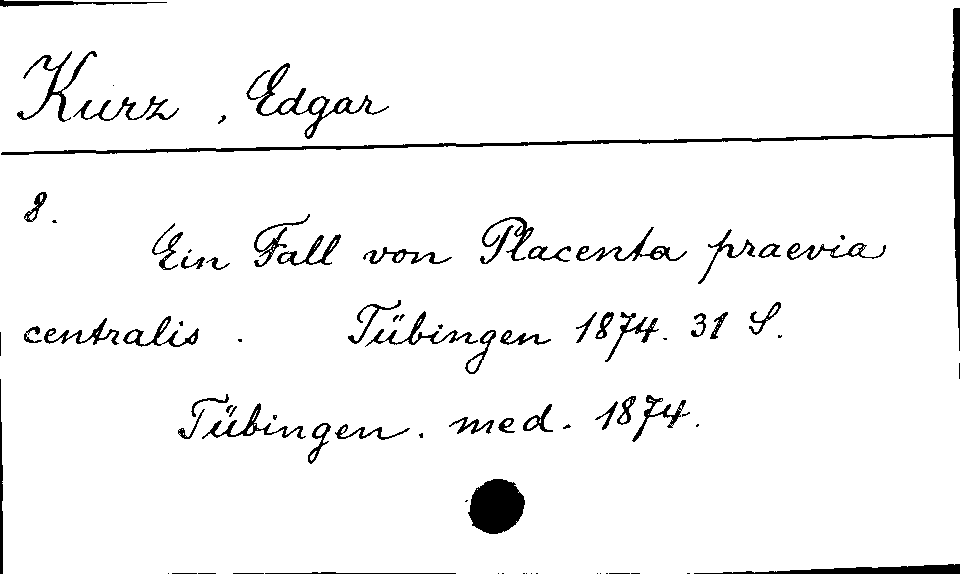 Kurz, Edgar
8.
Ein Fall von Placenta praevia
centralis. Tübingen 1874. 31 S.
Tübingen. med. 1874.